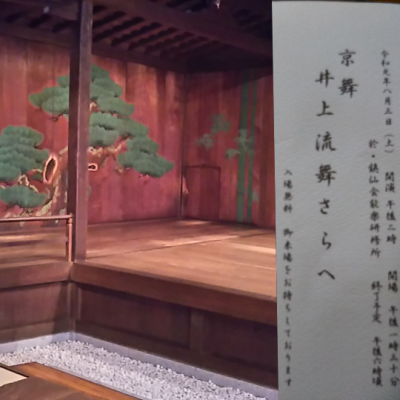 京舞
井上流舞さらへ
令和元年八月三日(土) 開演 午後二時 開場 午後一時三十分
於・銕仙会能楽研修所 終了予定 午後六時頃
入場無料 御来場をお待ちしております